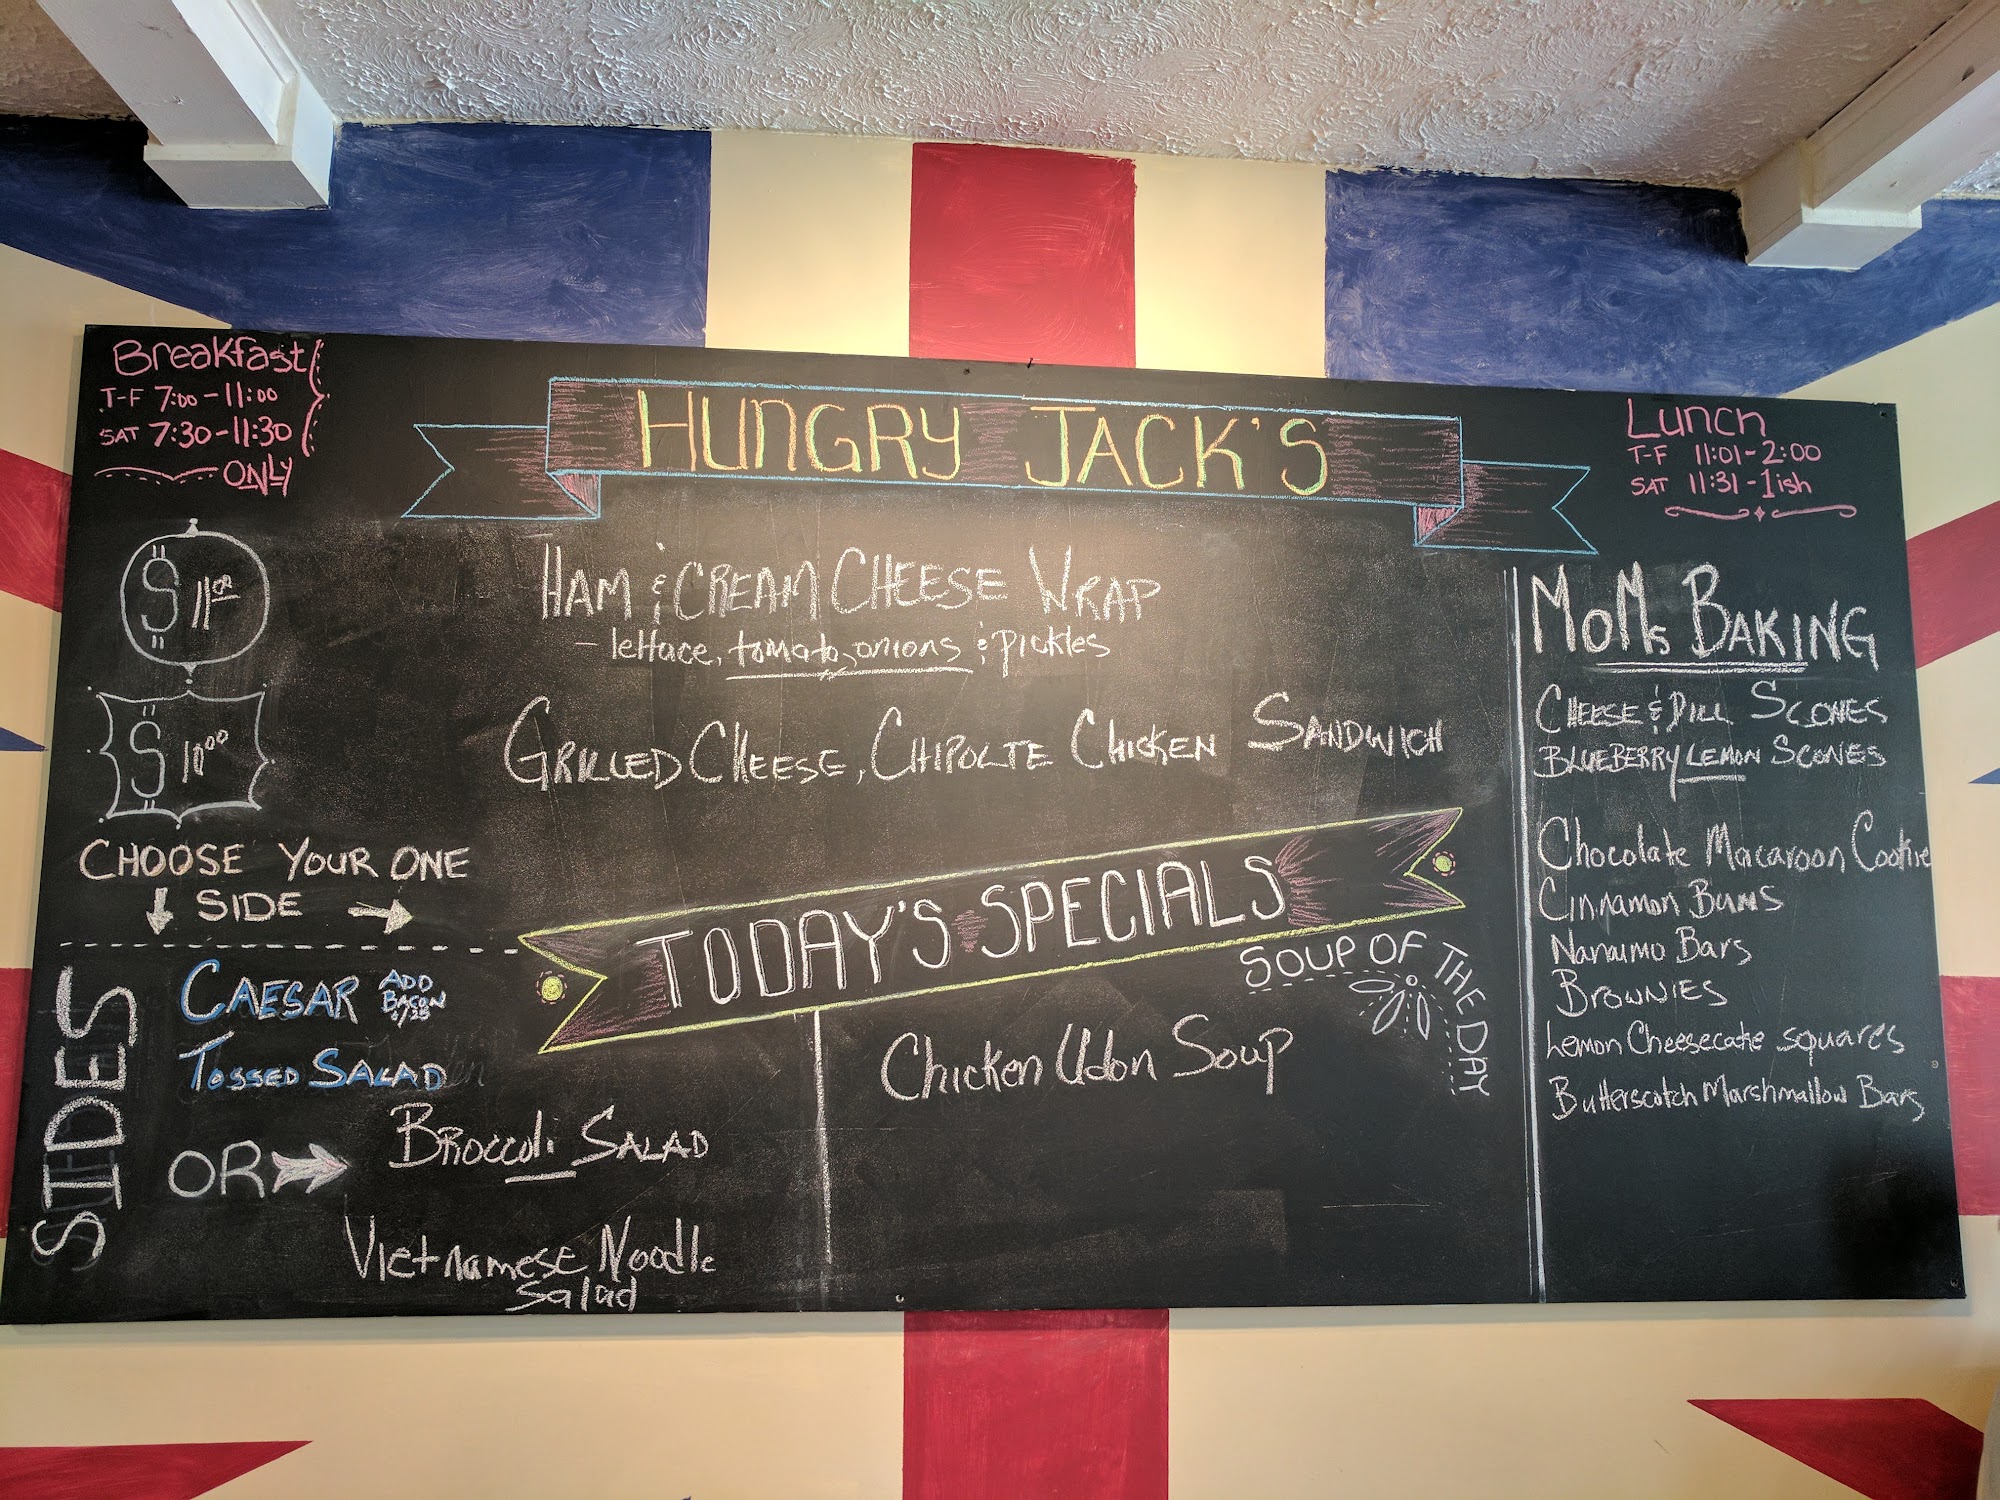 Breakfast
T-F 7:00-11:00
SAT 7:30-11:30
ONLY
HUNGRY JACK'S
Lunch
T-F 11:01-2:00
SAT 11:31-1ish
$ 11.00
HAM & CREAM CHEESE WRAP
- lettace, tomato, onions & pickles
$ 10.00
GRILLED CHEESE, CHIPOLTE CHICKEN SANDWICH
CHOOSE YOUR ONE
SIDE
TODAY'S SPECIALS
SIDES
CAESAR
ADD
BACON
TOSSED SALAD
OR
BROCCOLI SALAD
VIETNAMESE NOODLE
Salad
SOUP OF THE DAY
Chicken Udon Soup
MOMS BAKING
CHEESE & DILL SCONES
BLUEBERRY LEMON SCONES
Chocolate Macaroon Cookie
Cinnamon Buns
Nanaimo Bars
BROWNIES
Lemon Cheesecake squares
Butterscotch Marshmallow Bars